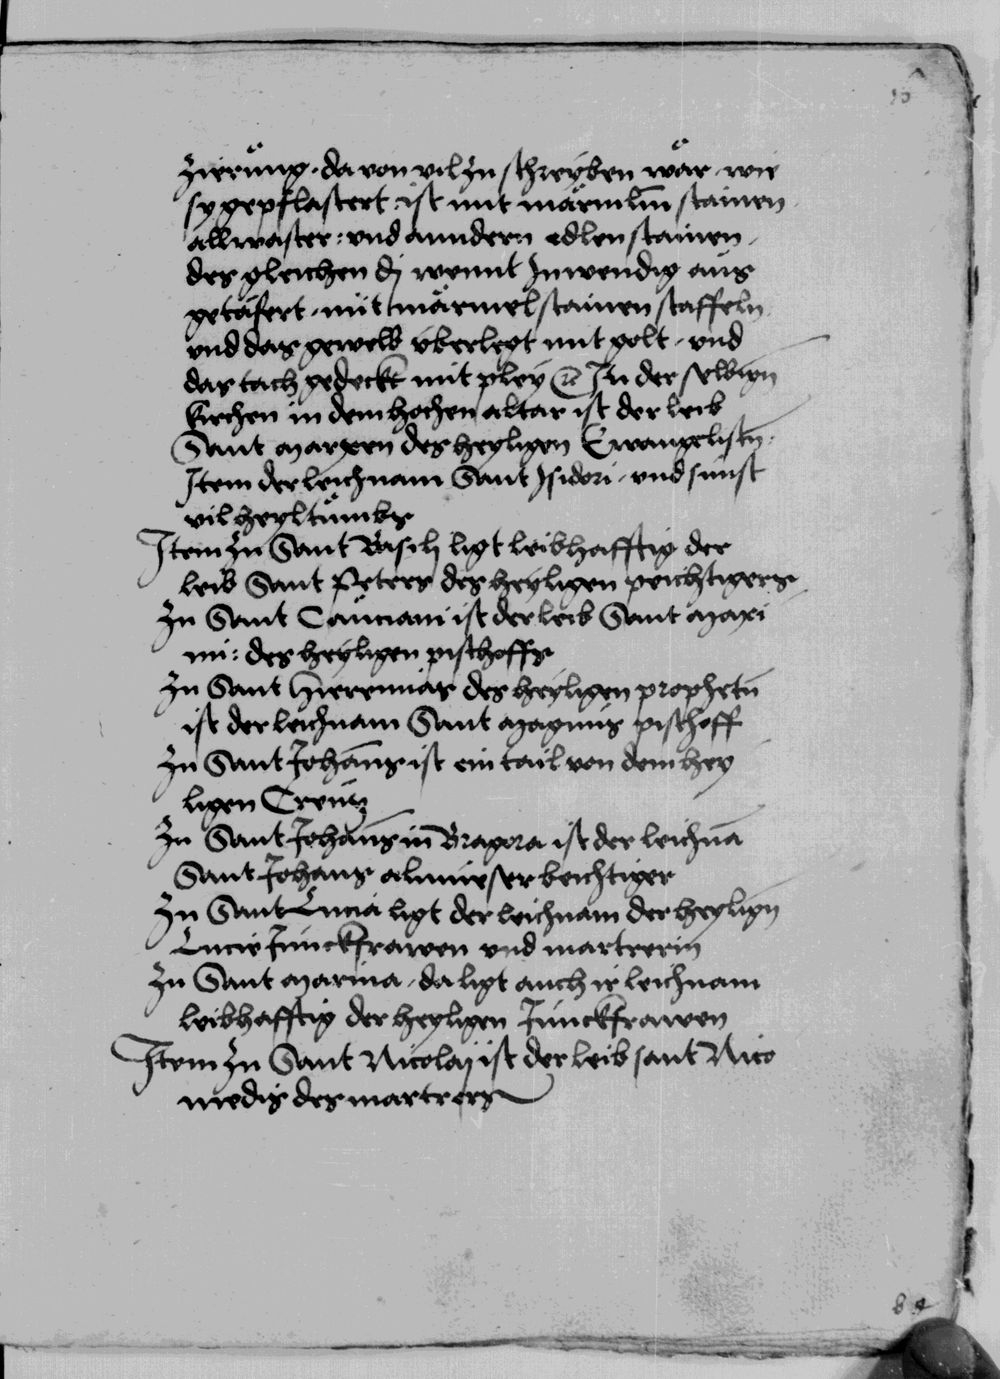 zierůng · da von vil zu schreyben wår · wie
sy gepflastert · ist mit mårmlin stainen
allwaster : vnd anndern edlen stainen ·
des gleichen dj wennt Inwendig aus
getåfert · mit mårmelstainen staffeln
vnd das gewelb vberlegt mit golt · vnd
das tach gedeckt mit pley &c In der selbign
kirchen in dem hochen altar ist der leib
Sant marxen des heyligen Ewangelistn̄ ·
Item der leichnam Sant Isidori · vnd sunst
vil heyltůmbs
Item zu Sant Basch ligt leibhafftig der
leib Sant Peters des heyligen peichtigers
Zu Sant Canciani ist der leib Sant maxi
mi : des heyligen pischoffs
Zu Sant Hieremias des heyligen prophetn̄
ist der leichnam Sant magnus pischoff
Zu Sant Johāns ist ein tail von dem hey
ligen Creutz
Zu Sant Johāns in Bragora ist der leichnā
Sant Johans almueser beichtiger
Zu Sant Lucia ligt der leichnam der heylign̄
Lucie Junckfrawen vnd martrerin
Zu Sant marina · da ligt auch ir leichnam
leibhafftig der heyligen Junckfrawen
Item zu Sant Nicolaj ist der leib sant Nico
medis des martrers